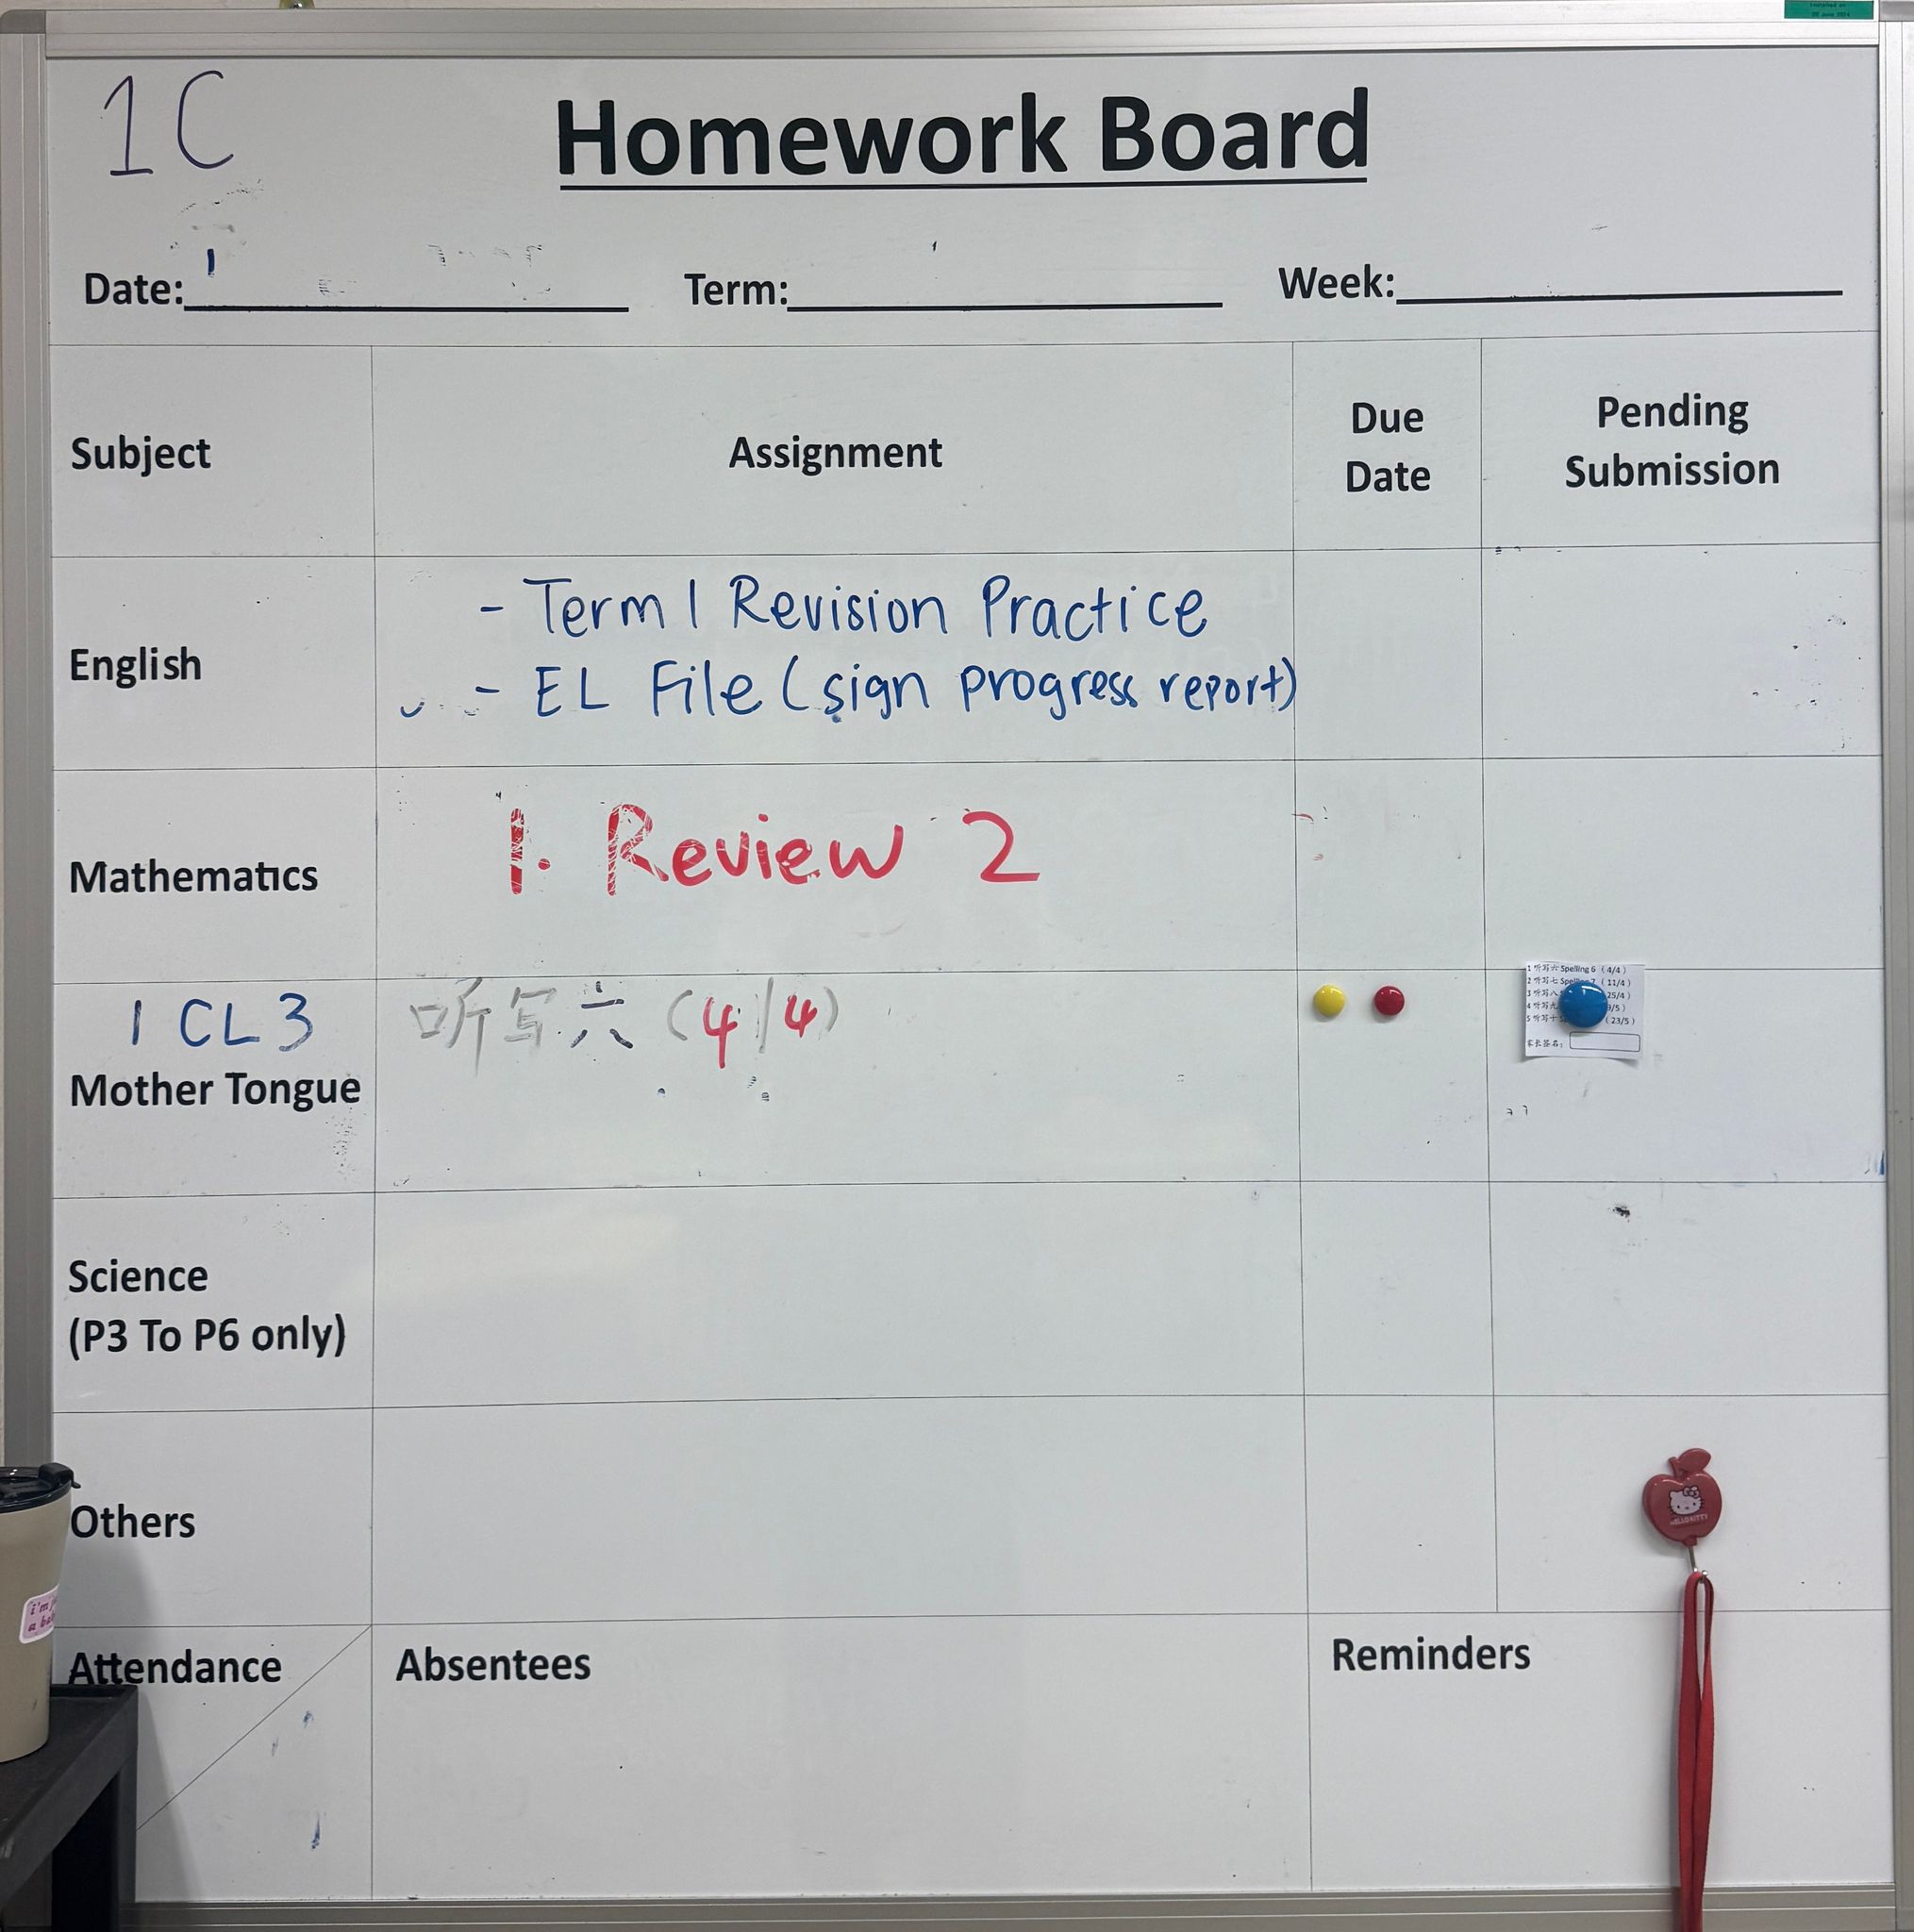 Installed on
1C
Homework Board
Date:
Term:
Week:
Subject
Assignment
Due Date
Pending Submission
English
- Term 1 Revision Practice
- EL File (sign progress report)
Mathematics
1. Review 2
1 CL 3
Mother Tongue
听写六 (4/4)
1 听写六 Spelling 6 (4/4)
2 听写七 (11/4)
3 听写八 25/4)
4 听写九 /5)
5 听写十 (23/5)
家长签名:
Science
(P3 To P6 only)
Others
HELLO KITTY
i'm
a
Attendance
Absentees
Reminders